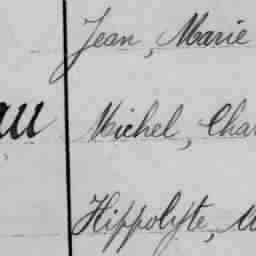 Jean, Marie
Michel, Char
Hippolyte, M